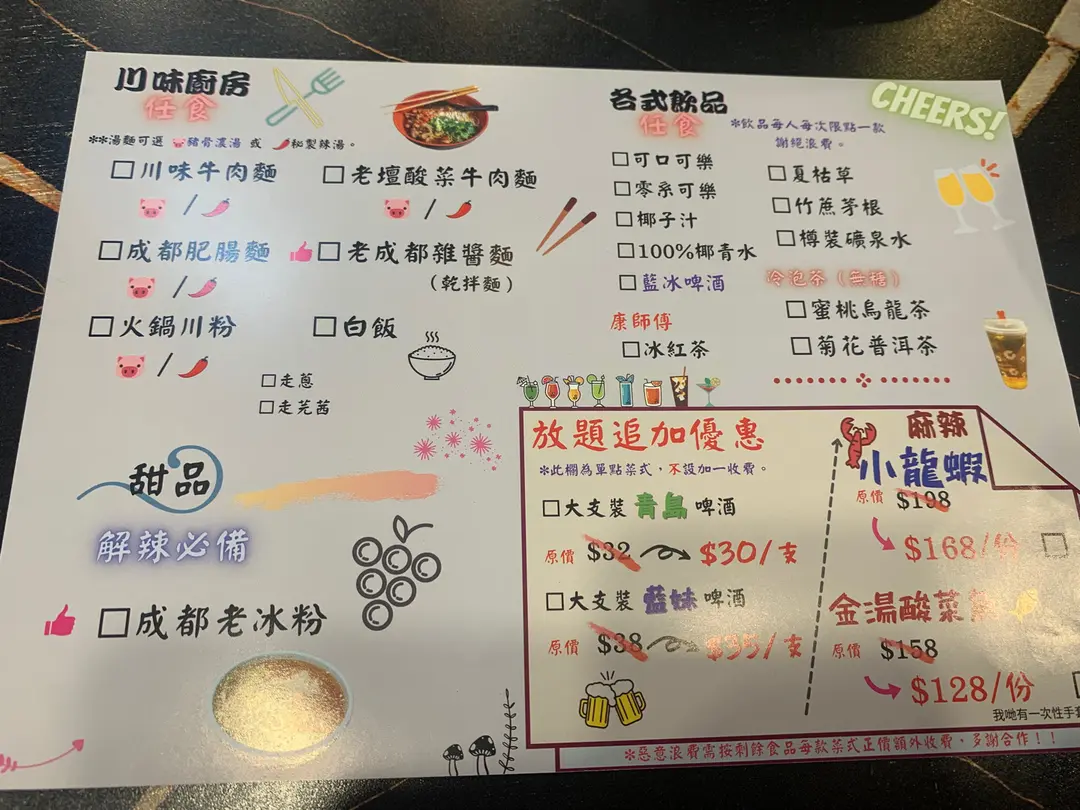 川味廚房
任食
**湯麵可選 豬骨濃湯 或 秘製辣湯。
□川味牛肉麵
□老壇酸菜牛肉麵
/
/
□成都肥腸麵
□老成都雜醬麵
(乾拌麵)
/
□火鍋川粉
□白飯
/
□走蔥
□走芫茜
甜品
解辣必備
□成都老冰粉
各式飲品
任食
CHEERS!
*飲品每人每次限點一款
謝絕浪費。
□可口可樂
□零系可樂
□椰子汁
□100%椰青水
□藍冰啤酒
康師傅
□冰紅茶
□夏枯草
□竹蔗茅根
□樽裝礦泉水
冷泡茶(無糖)
□蜜桃烏龍茶
□菊花普洱茶
放題追加優惠
*此欄為單點菜式,不設加一收費。
□大支裝 青島 啤酒
原價 $32 $30/支
□大支裝 藍妹 啤酒
原價 $38 $35/支
麻辣
小龍蝦
原價 $198
$168/份 □
金湯酸菜
原價 $158
$128/份
我哋有一次性手
*惡意浪費需按剩餘食品每款菜式正價額外收費。多謝合作!!